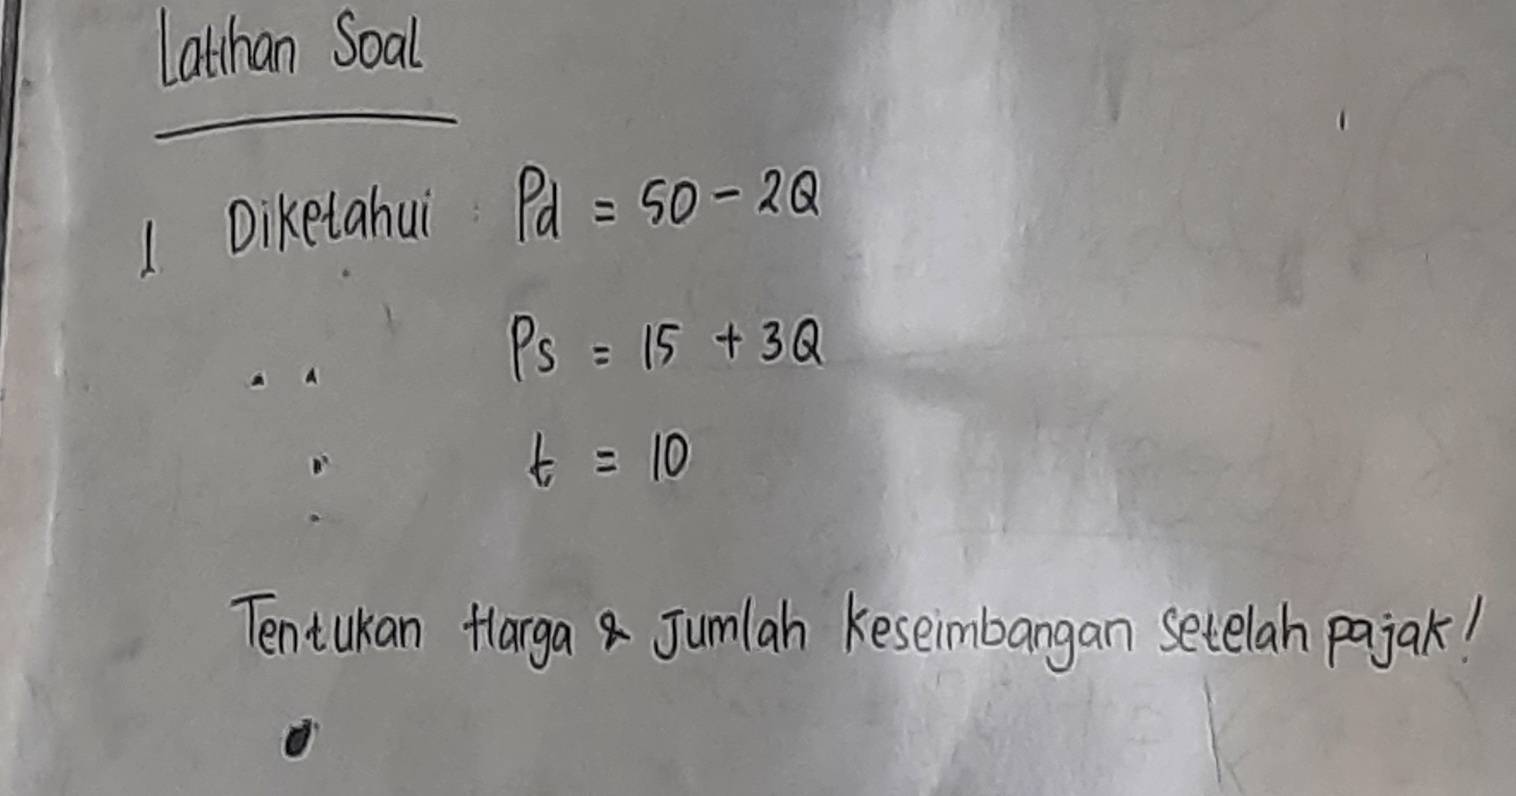 Latihan Soal
1. Diketahui : Pd = 50 - 2Q
Ps = 15 + 3Q
t = 10
Tentukan Harga & Jumlah keseimbangan setelah pajak!